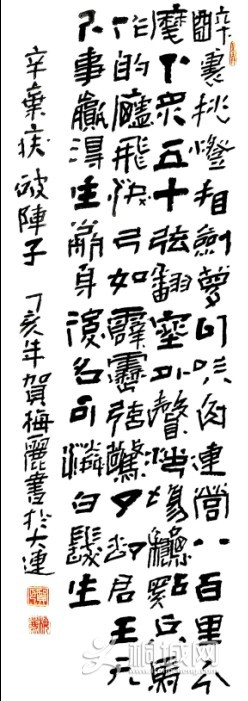 醉裏挑燈看劍夢回吹角連營八百里分
麾下炙五十弦翻塞外聲沙場龝點兵馬
作的盧飛快弓如霹靂弦驚了卻君王天
下事贏得生前身後名可憐白髮生
辛棄疾破陣子 丁亥年賀梅麗書於大連
桐城网